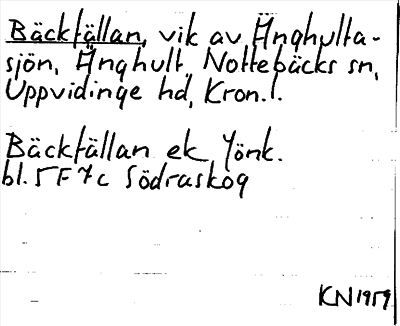 Bäckfällan, vik av Änghulta-
sjön, Änghult, Nottebäcks sn,
Uppvidinge hd, Kron.l.
Bäckfällan ek Jönk.
bl. 5F 7c Södraskog
KN 1959